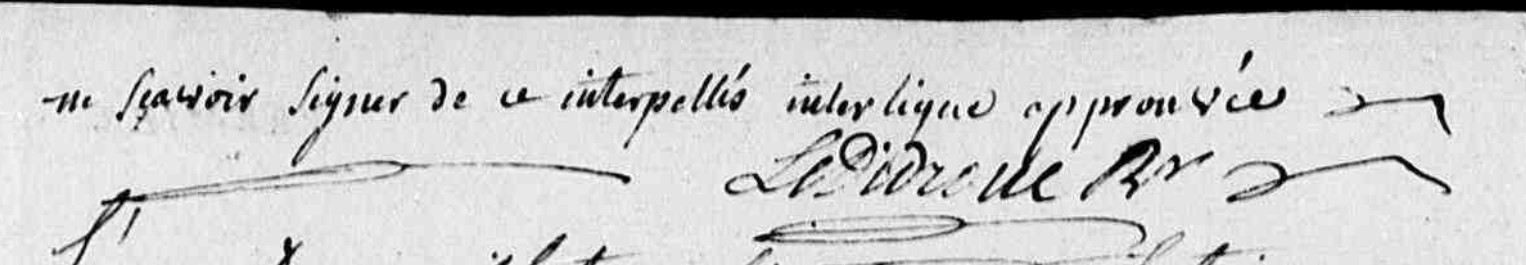 ne sçavoir signer de ce interpellés interligne approuvée
LeDidroue Rr